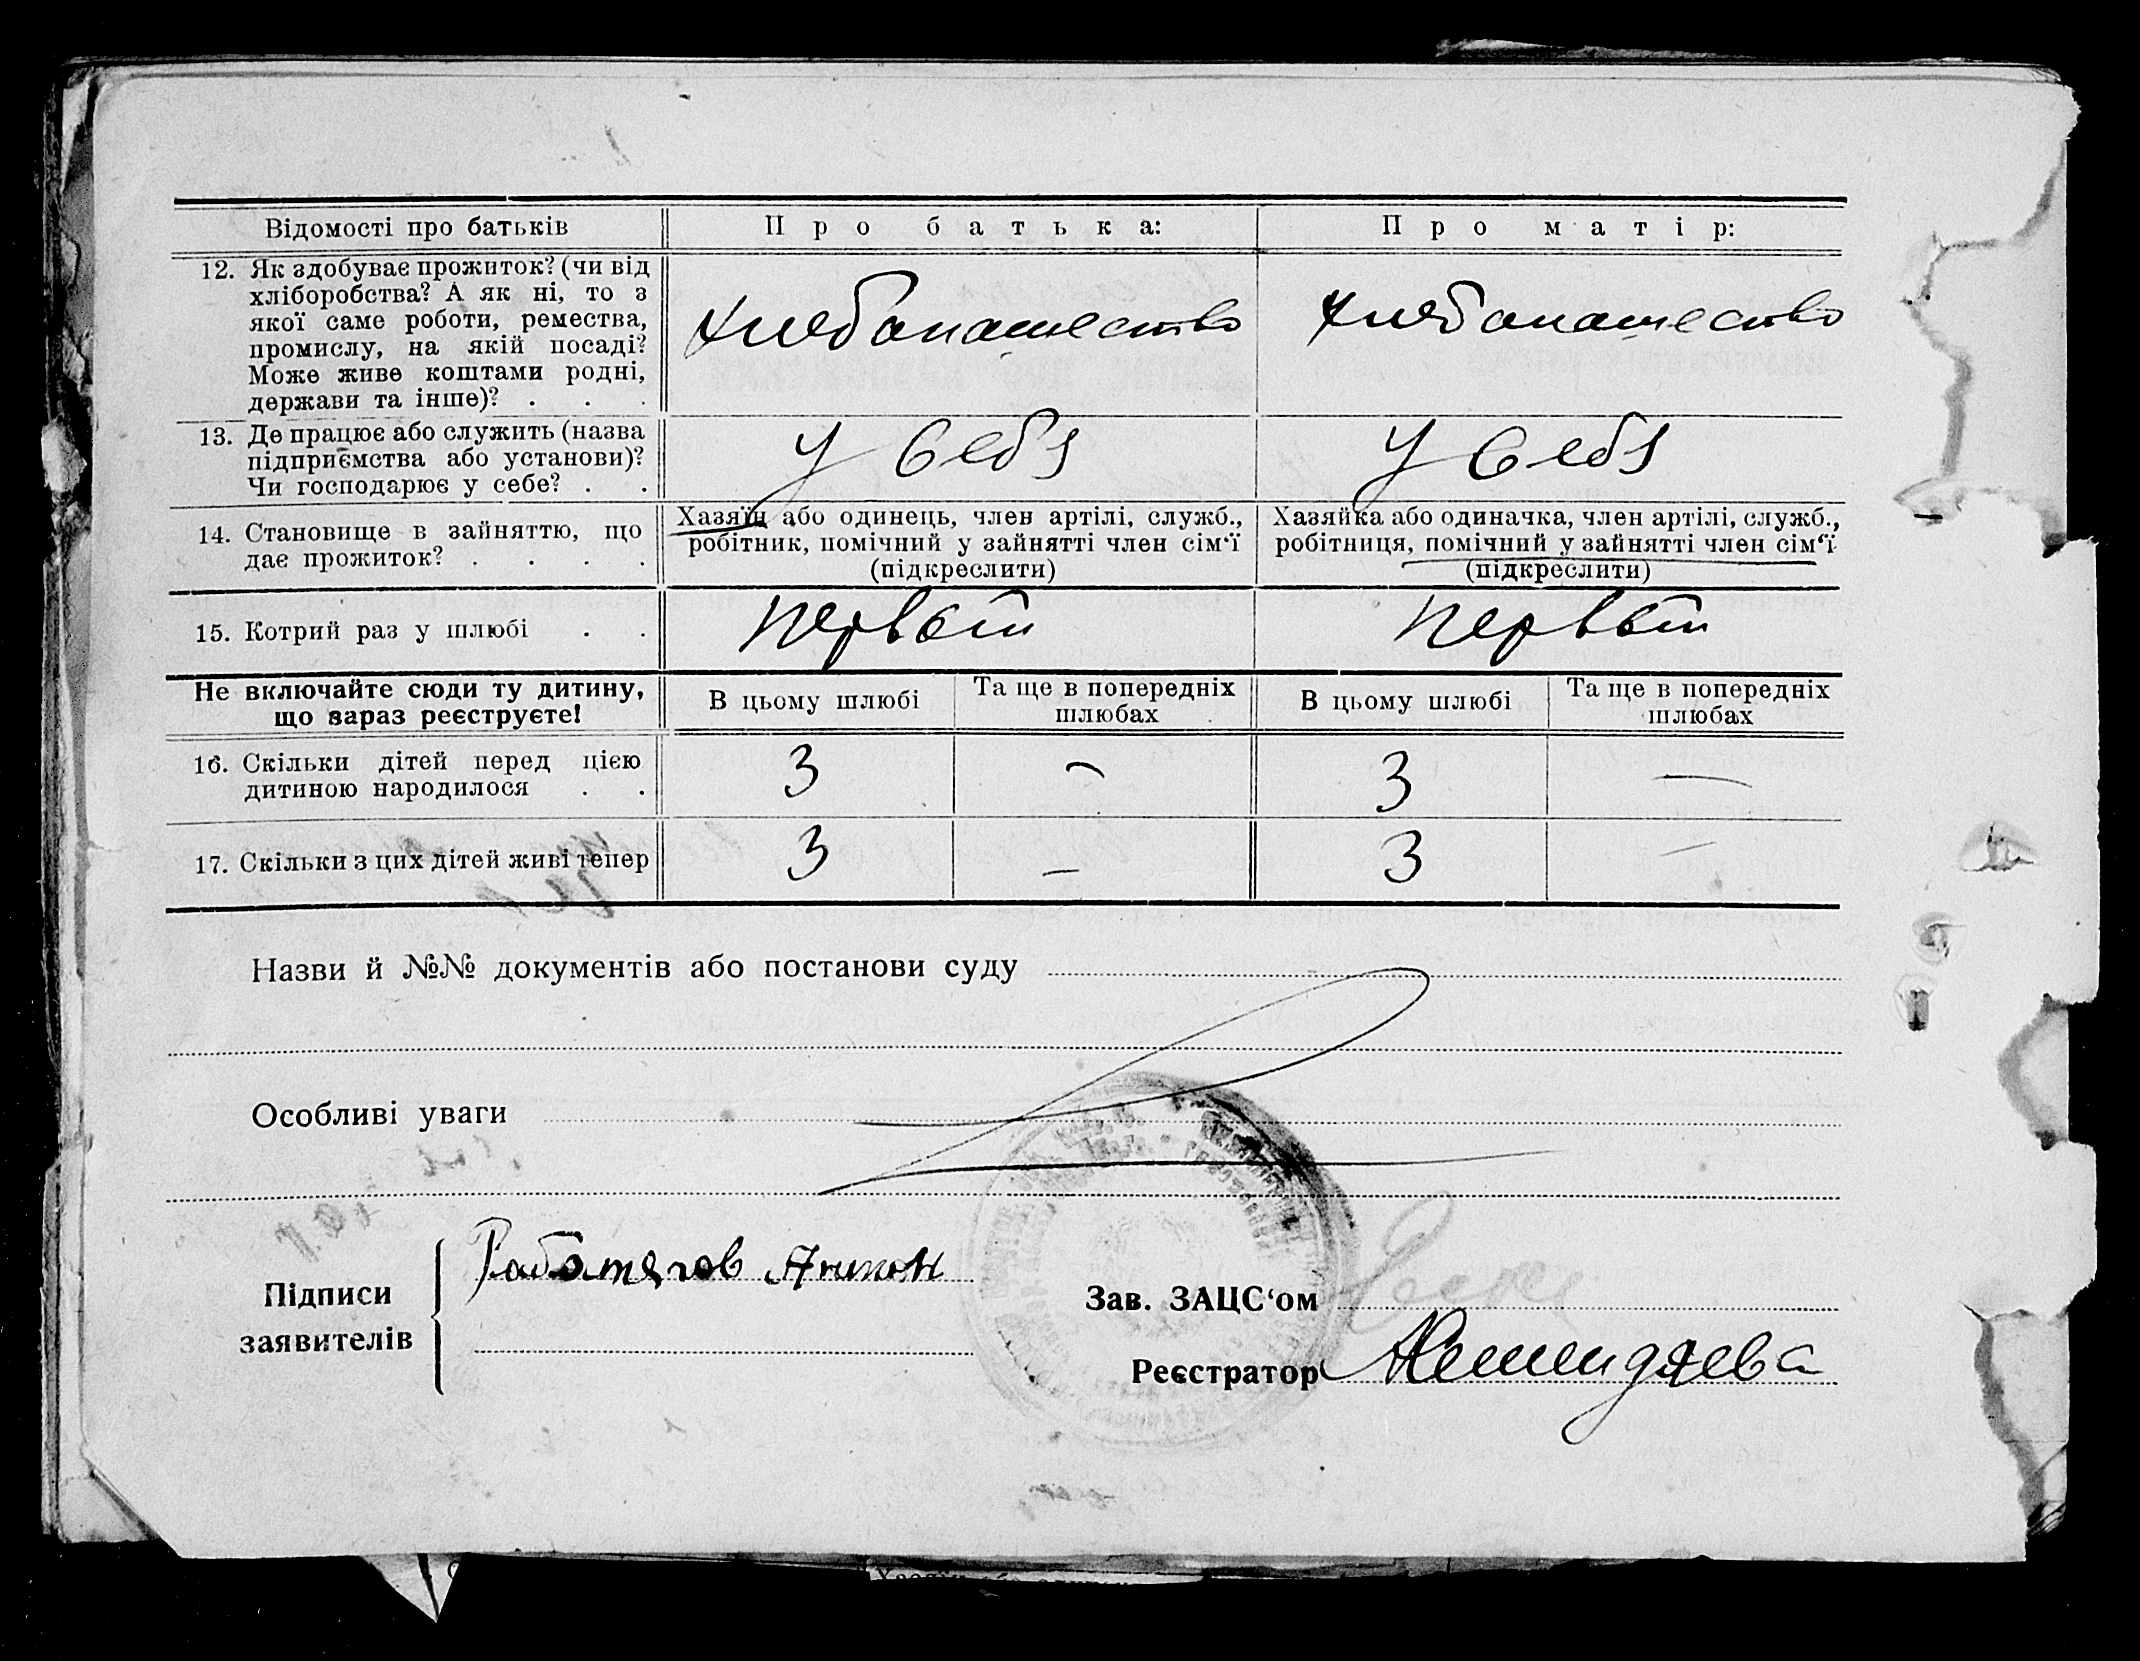 Відомості про батьків
Про батька:
Про матір:
12. Як здобуває прожиток? (чи від
хліборобства? А як ні, то з
якої саме роботи, ремества,
промислу, на якій посаді?
Може живе коштами родні,
держави та інше)? . . .
хлебопашество
хлебопашество
13. Де працює або служить (назва
підприємства або установи)?
Чи господарює у себе? . .
у себя
у себя
14. Становище в зайняттю, що
дає прожиток? . . . .
Хазяїн або одинець, член артілі, служб.,
робітник, помічний у зайнятті член сім‘ї
(підкреслити)
Хазяйка або одиначка, член артілі, служб.,
робітниця, помічний у зайнятті член сім‘ї
(підкреслити)
15. Котрий раз у шлюбі . .
первый
первый
Не включайте сюди ту дитину,
що зараз реєструєте!
В цьому шлюбі
Та ще в попередніх
шлюбах
В цьому шлюбі
Та ще в попередніх
шлюбах
16. Скільки дітей перед цією
дитиною народилося . .
3 — 3 —
17. Скільки з цих дітей живі тепер
3 — 3 —
Назви й №№ документів або постанови суду
Особливі уваги
Підписи
заявителів
Работягов Антон
Зав. ЗАЦС‘ом
Реєстратор